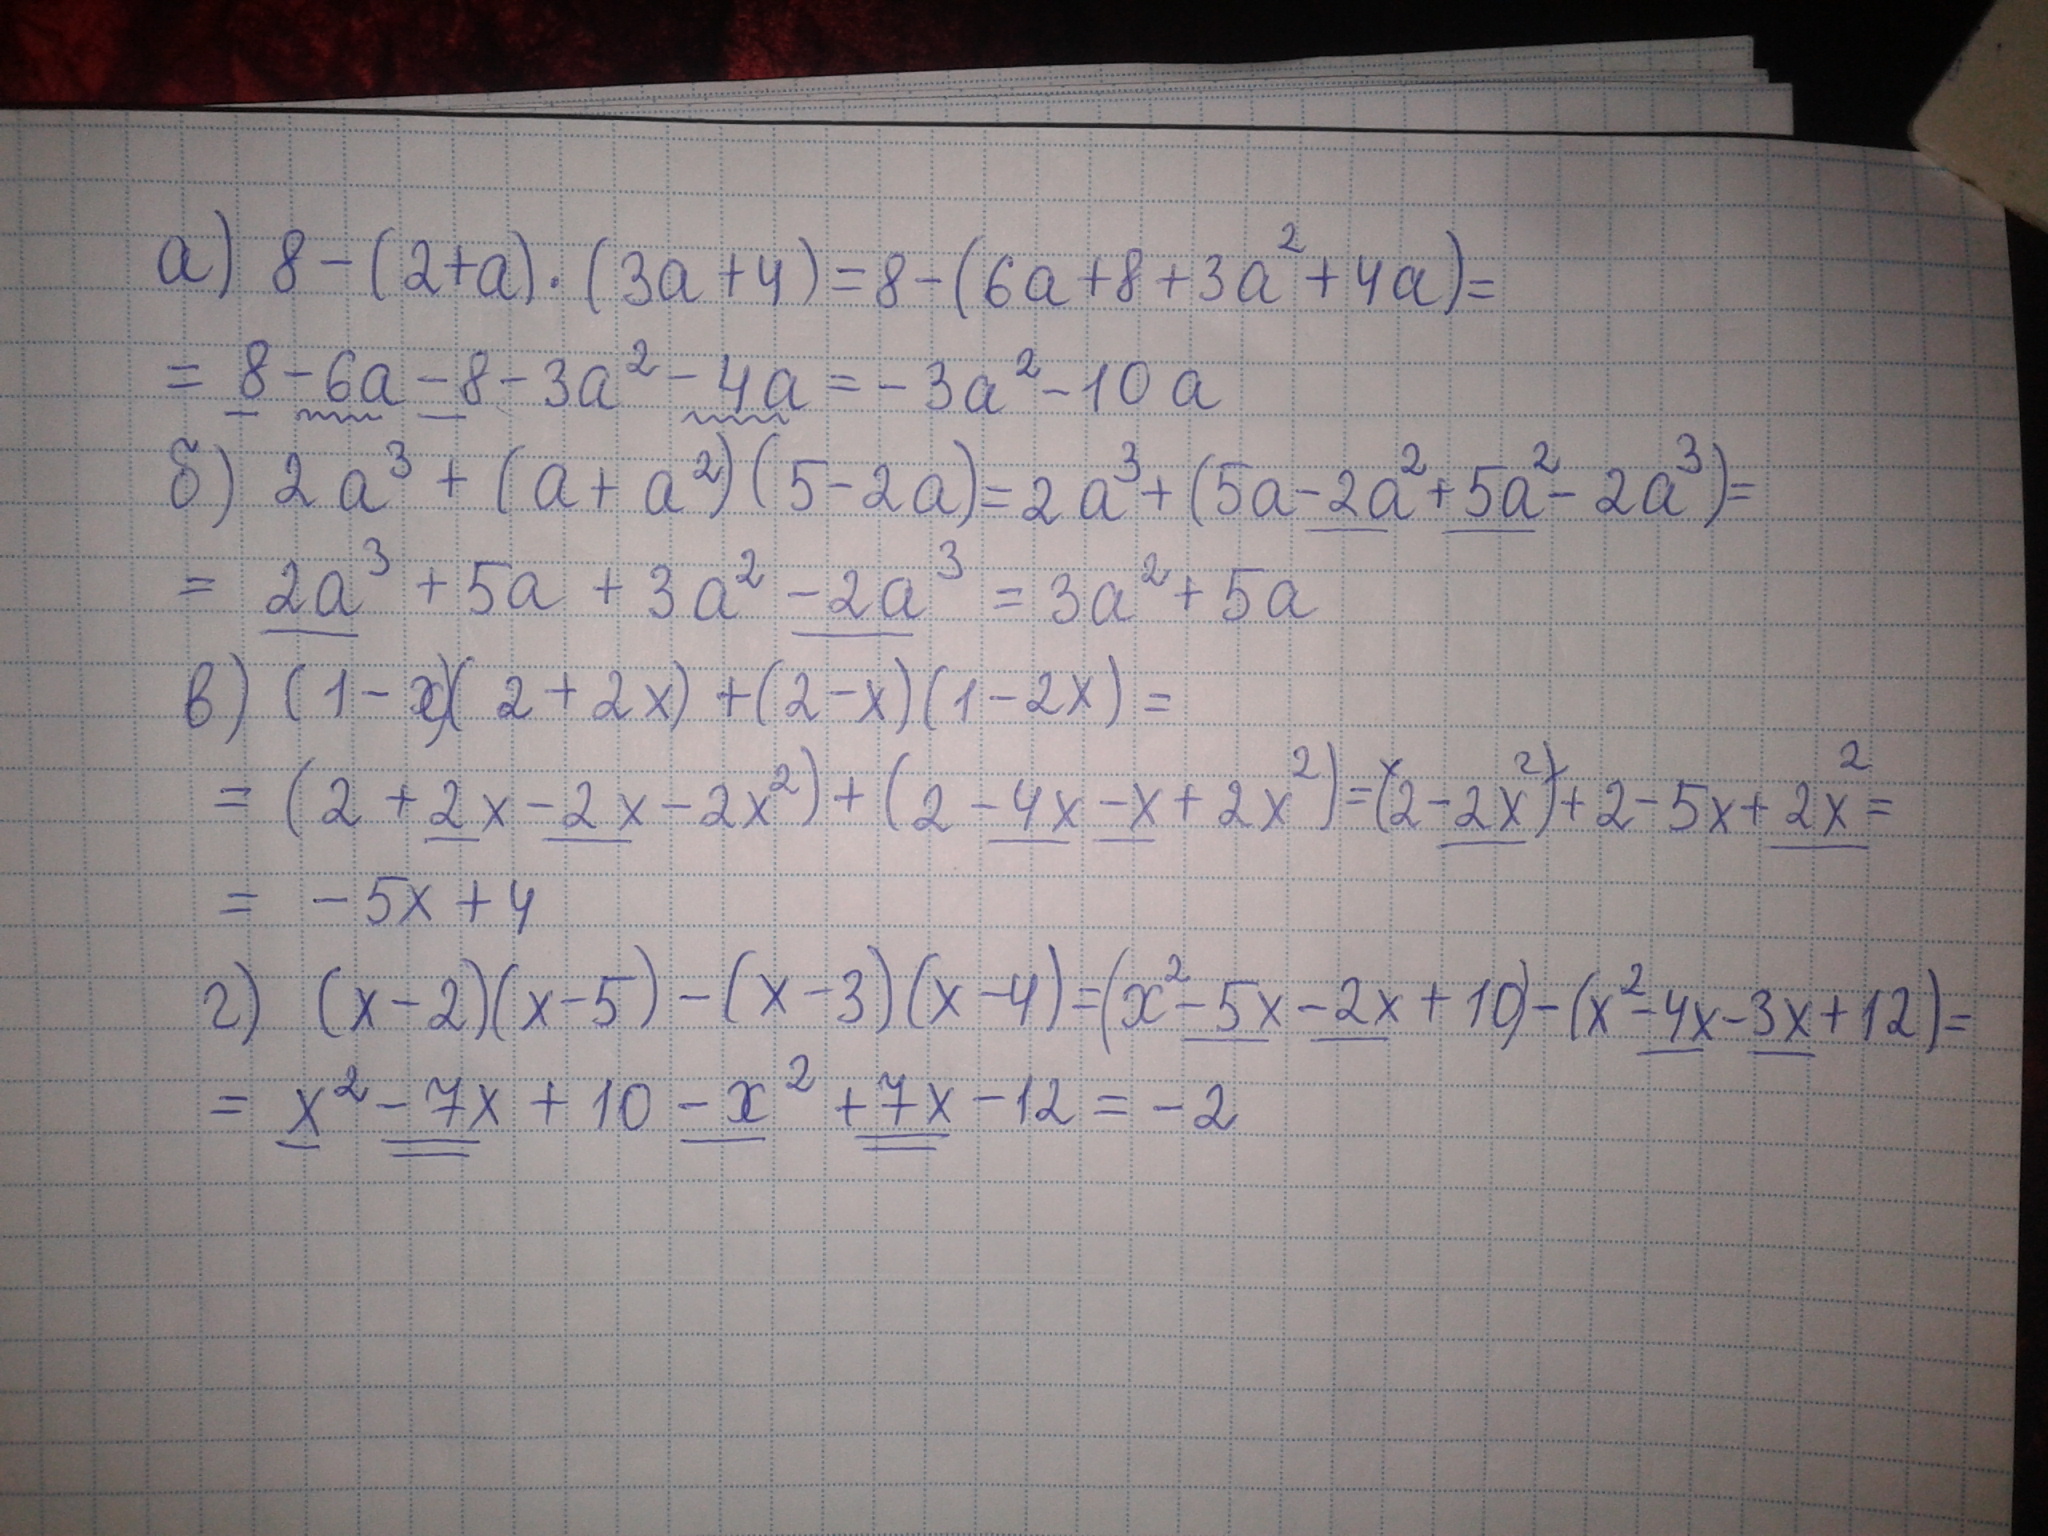 а) 8-(2+a)·(3a+4)=8-(6a+8+3a²+4a)=
= 8-6a-8-3a²-4a=-3a²-10a
б) 2a³+(a+a²)(5-2a)=2a³+(5a-2a²+5a²-2a³)=
= 2a³+5a+3a²-2a³=3a²+5a
в) (1-x)(2+2x)+(2-x)(1-2x)=
= (2+2x-2x-2x²)+(2-4x-x+2x²)=(2-2x²)+2-5x+2x²=
= -5x+4
г) (x-2)(x-5)-(x-3)(x-4)=(x²-5x-2x+10)-(x²-4x-3x+12)=
= x²-7x+10-x²+7x-12=-2